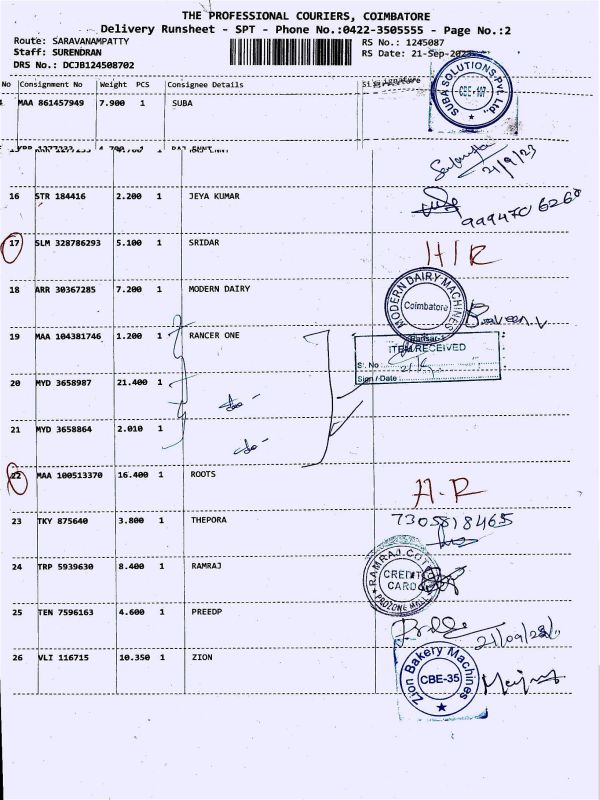 THE PROFESSIONAL COURIERS, COIMBATORE
Delivery Runsheet - SPT - Phone No.:0422-3505555 - Page No.:2
Route: SARAVANAMPATTY RS No.: 1245087
Staff: SURENDRAN RS Date: 21-Sep-2023
DRS No.: DCJB124508702
No Consignment No Weight PCS Consignee Details Signature
MAA 861457949 7.900 1 SUBA
SUBA SOLUTIONS Pvt. Ltd.,
CBE-107
21/9/23
16 STR 184416 2.200 1 JEYA KUMAR
9994706260
17 SLM 328786293 5.100 1 SRIDAR H/R
18 ARR 30367285 7.200 1 MODERN DAIRY
MODERN DAIRY MACHINES
Coimbatore
Praveen.V
19 MAA 104381746 1.200 1 RANCER ONE
ITEM RECEIVED
Sl. No
Sign / Date
20 MYD 3658987 21.400 1 -do-
21 MYD 3658864 2.010 1 -do-
22 MAA 100513370 16.400 1 ROOTS H.R
23 TKY 875640 3.800 1 THEPORA 7305818465
24 TRP 5939630 8.400 1 RAMRAJ
RAMRAJ COT
CREDIT
CARD
PROZONE MALL
25 TEN 7596163 4.600 1 PREEDP
21/09/23
26 VLI 116715 10.350 1 ZION
Zion Bakery Machines
CBE-35